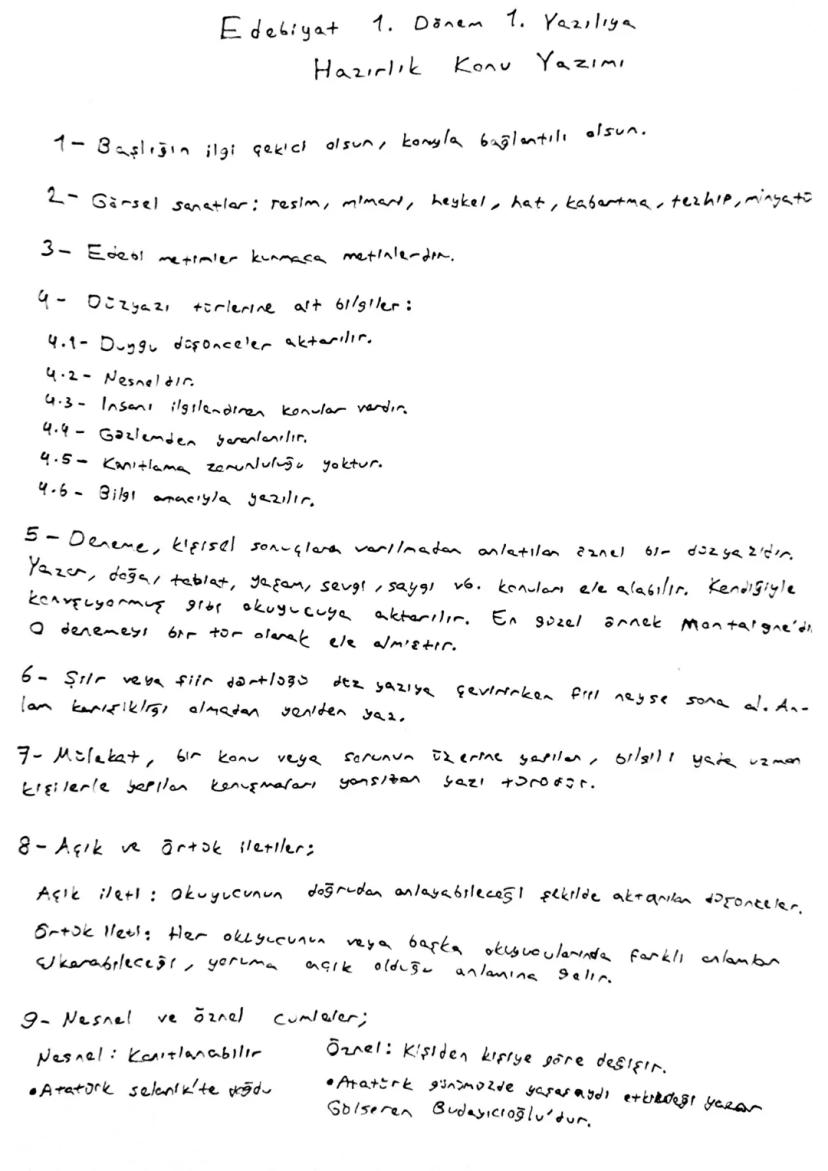 Edebiyat 1. Dönem 1. Yazılıya
Hazırlık Konu Yazımı
1- Başlığın ilgi çekici olsun, konuyla bağlantılı olsun.
2- Görsel sanatlar: resim, mimari, heykel, hat, kabartma, tezhip, minyatü
3- Edebi metinler kurmaca metinlerdir.
4- Düzyazı türlerine ait bilgiler:
4.1- Duygu düşünceler aktarılır.
4.2- Nesneldir.
4.3- İnsanı ilgilendiren konular vardır.
4.4- Gözlemden yararlanılır.
4.5- Kanıtlama zorunluluğu yoktur.
4.6- Bilgi amacıyla yazılır.
5- Deneme, kişisel sonuçlara varılmadan anlatılan öznel bir düzyazıdır.
Yazar, doğa, tabiat, yaşam, sevgi, saygı vb. konuları ele alabilir. Kendisiyle
konuşuyormuş gibi okuyucuya aktarılır. En güzel örnek Montaigne'di
O denemeyi bir tür olarak ele almıştır.
6- Şiir veya şiir dörtlüğü düz yazıya çevirirken fiil neyse sona al. An-
lam karışıklığı olmadan yeniden yaz.
7- Mülakat, bir konu veya sorunun üzerine yapılan, bilgili yada uzman
kişilerle yapılan konuşmaları yansıtan yazı türüdür.
8- Açık ve örtük iletiler;
Açık ileti: Okuyucunun doğrudan anlayabileceği şekilde aktarılan düşünceler.
Örtük ileti: Her okuyucunun veya başka okuyucularında farklı anlamlar
çıkarabileceği, yoruma açık olduğu anlamına gelir.
9- Nesnel ve öznel cümleler;
Nesnel: Kanıtlanabilir
• Atatürk selanik'te doğdu
Öznel: Kişiden kişiye göre değişir.
• Atatürk günümüzde yaşasaydı yazar
Gülseren Budayıcıoğlu'dur.